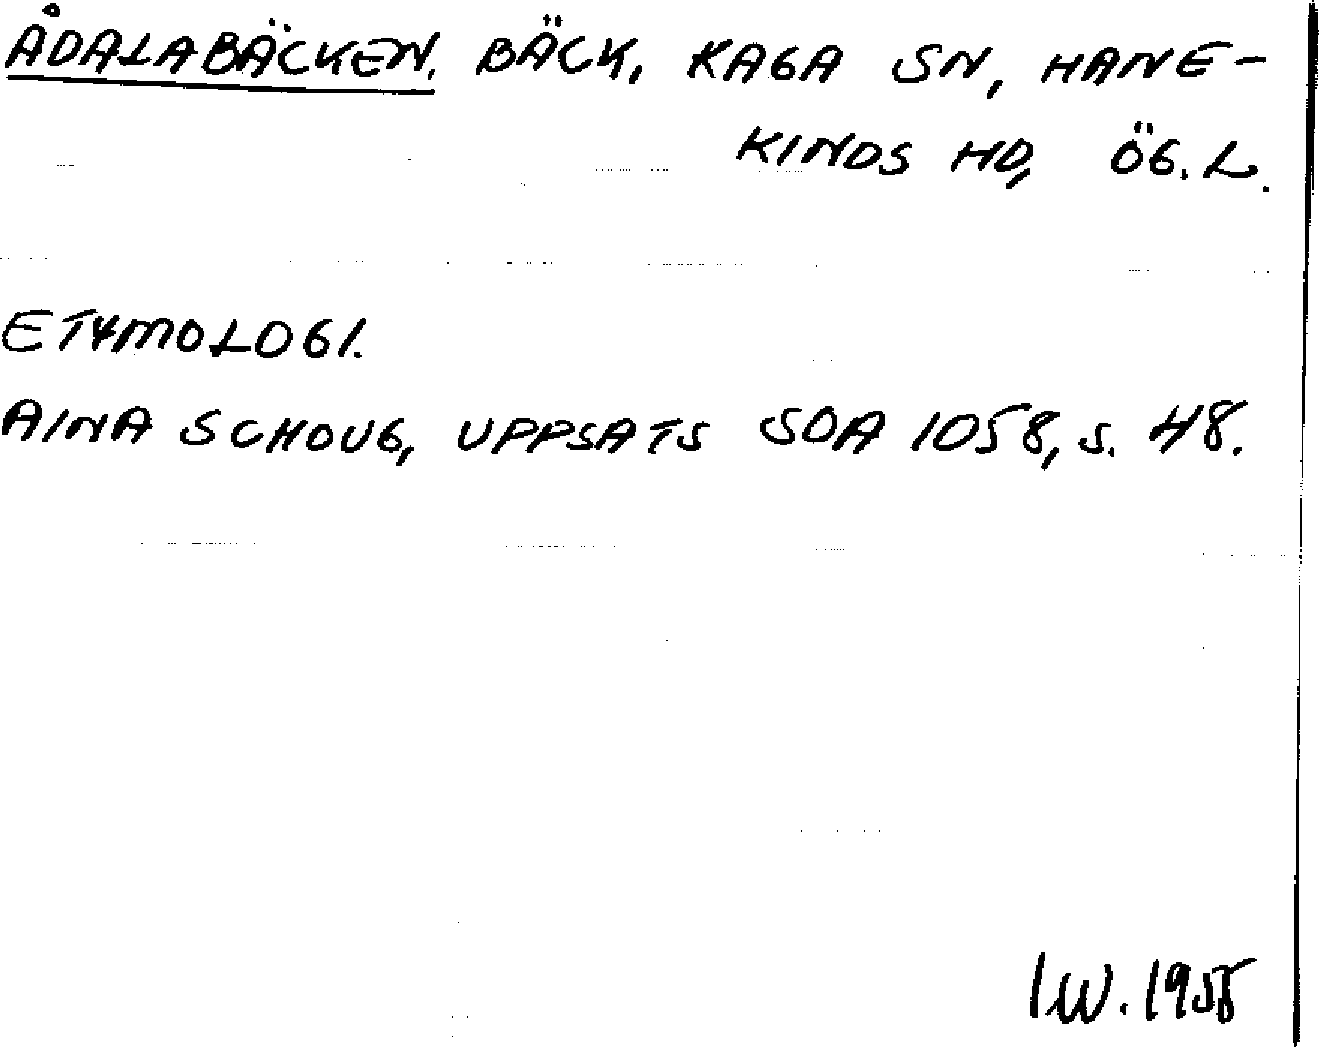 ÅDALABÄCKEN. BÄCK, KAGA SN, HANE-
KINDS HD, ÖG.L.
ETYMOLOGI.
AINA SCHOUG, UPPSATS SOA 1058, S. 48.
IW. 1955